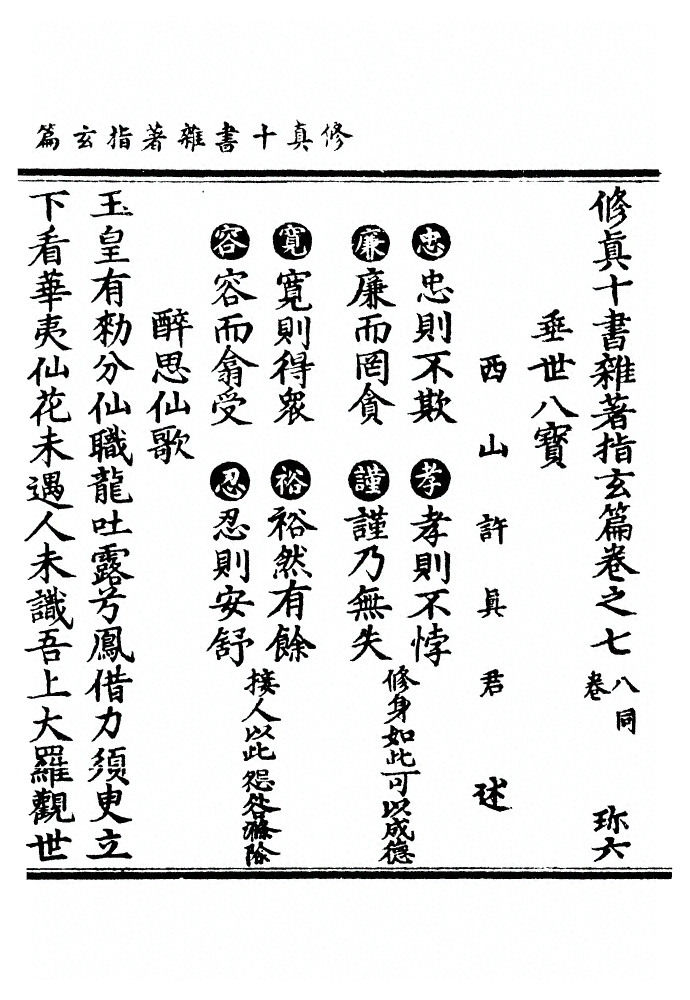 修真十書雜著指玄篇
修眞十書雜著指玄篇卷之七 八同卷 珎六
垂世八寶
西山許眞君 述
忠 忠則不欺 孝 孝則不悖
廉 廉而罔貪 謹 謹乃無失 修身如此可以成德
寛 寛則得衆 裕 裕然有餘
容 容而翕受 忍 忍則安舒 接人以此怨咎滌除
醉思仙歌
玉皇有勑分仙職龍吐露兮鳳借力須臾立
下看華夷仙花未遇人未識吾上大羅觀世